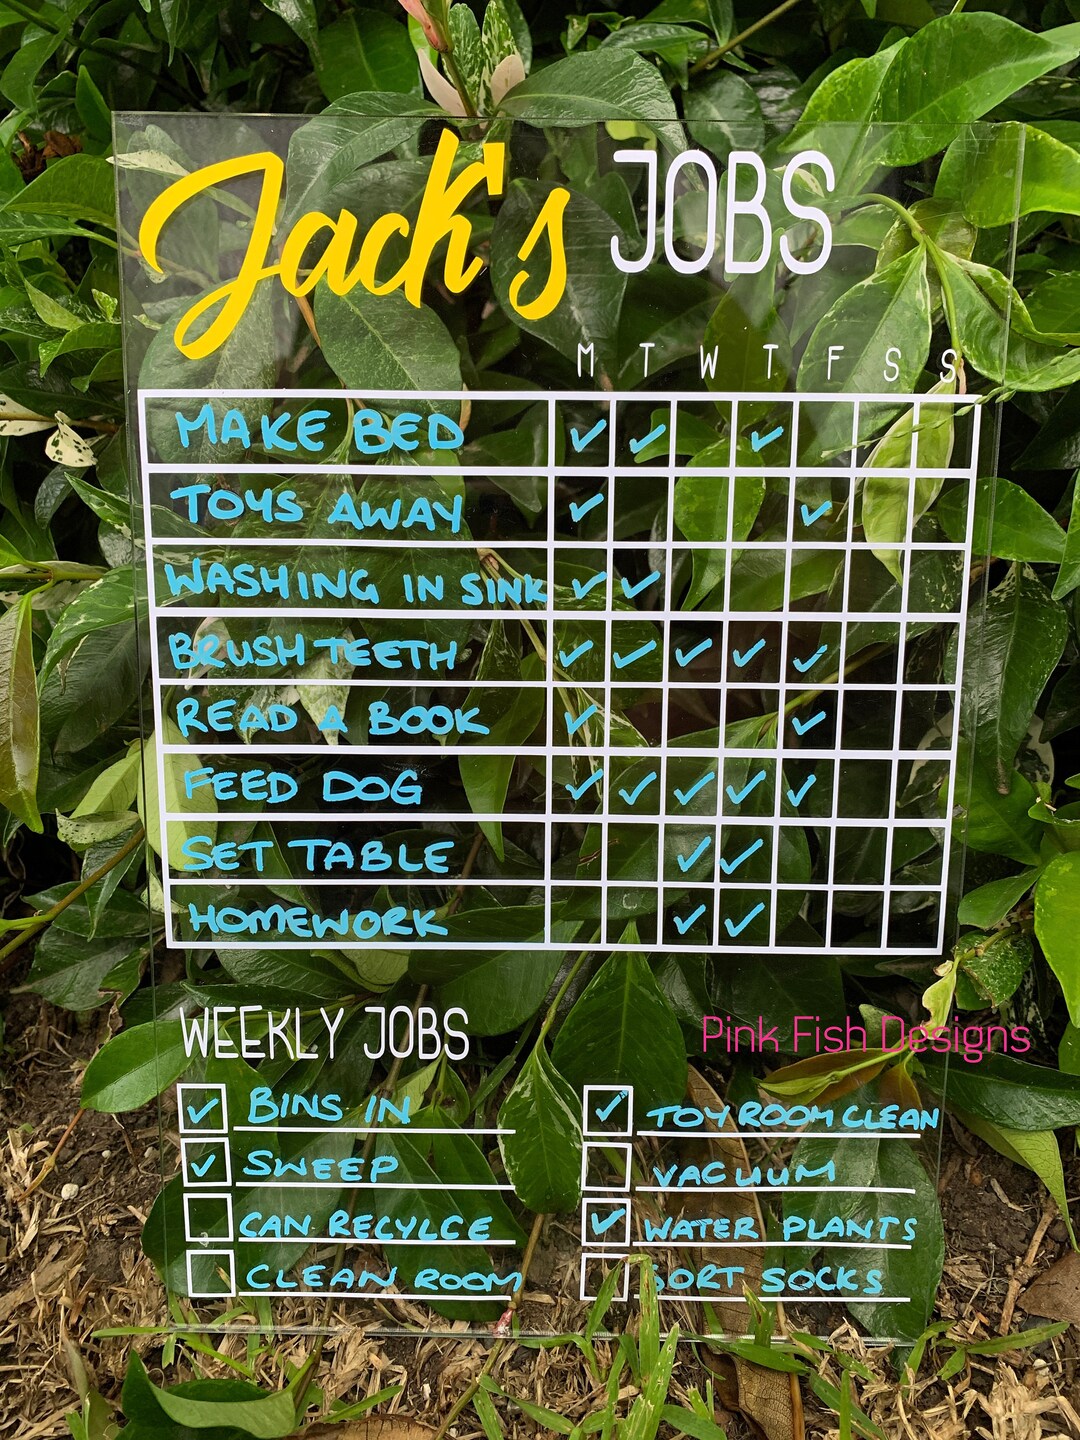 Jack's JOBS
M T W T F S S
MAKE BED ✓ ✓ ✓
TOYS AWAY ✓ ✓
WASHING IN SINK ✓ ✓
BRUSH TEETH ✓ ✓ ✓ ✓ ✓
READ A BOOK ✓ ✓
FEED DOG ✓ ✓ ✓ ✓ ✓
SET TABLE ✓ ✓
HOMEWORK ✓ ✓
WEEKLY JOBS
Pink Fish Designs
✓ BINS IN
✓ SWEEP
CAN RECYLCE
CLEAN ROOM
✓ TOY ROOM CLEAN
VACUUM
✓ WATER PLANTS
SORT SOCKS